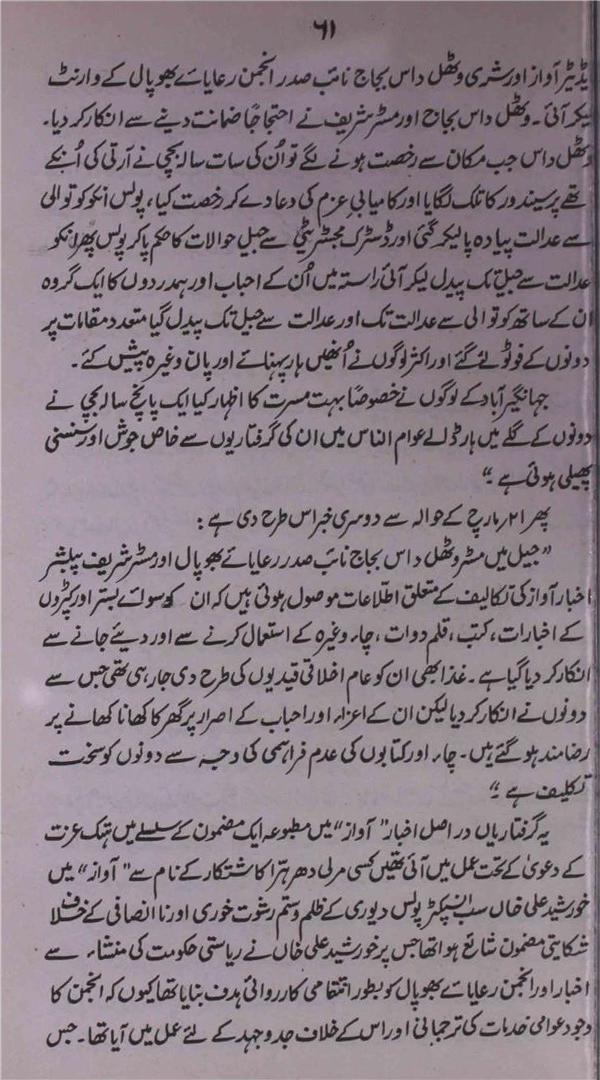 ۶۱
یڈیٹر آواز اور شری وٹھل داس بجاج نائب صدر انجمن رعایائے بھوپال کے وارنٹ
لیکر آئی۔ وٹھل داس بجاج اور مسٹر شریف نے احتجاجاً ضمانت دینے سے انکار کر دیا۔
وٹھل داس جب مکان سے رخصت ہونے لگے تو اُن کی سات سالہ بچی نے آرتی کی اُنکے
تھے پر سیندور کا تلک لگایا اور کامیابیِ عزم کی دعا دے کر رخصت کیا، پولس انکو کوتوالی
سے عدالت پیادہ پا لیکر گئی اور ڈسٹرک مجسٹریٹ سے جیل حوالات کا حکم پا کر پولس پھر انکو
عدالت سے جیل تک پیدل لیکر آئی راستہ میں اُن کے احباب اور ہمدردوں کا ایک گروہ
ان کے ساتھ کوتوالی سے عدالت تک اور عدالت سے جیل تک پیدل گیا متعدد مقامات پر
دونوں کے فوٹو لئے گئے اور اکثر لوگوں نے اُنھیں ہار پہنائے اور پان وغیرہ پیش کئے۔
جہانگیر آباد کے لوگوں نے خصوصاً بہت مسرت کا اظہار کیا ایک پانچ سالہ بچی نے
دونوں کے گلے میں ہار ڈالے عوام الناس میں ان کی گرفتاریوں سے خاص جوش اور سنسنی
پھیلی ہوئی ہے۔"
پھر ۲۱ مارچ کے حوالہ سے دوسری خبر اس طرح دی ہے:
"جیل میں مسٹر وٹھل داس بجاج نائب صدر رعایائے بھوپال اور مسٹر شریف پبلشر
اخبار آواز کی تکالیف کے متعلق اطلاعات موصول ہوئی ہیں کہ ان کو سوائے بستر اور کپڑوں
کے اخبارات، کتب، قلم دوات، چاء وغیرہ کے استعمال کرنے سے اور دیئے جانے سے
انکار کر دیا گیا ہے۔ غذا بھی ان کو عام اخلاقی قیدیوں کی طرح دی جا رہی تھی جس سے
دونوں نے انکار کر دیا لیکن ان کے اعزاء اور احباب کے اصرار پر گھر کا کھانا کھانے پر
رضامند ہو گئے ہیں۔ چاء اور کتابوں کی عدم فراہمی کی وجہ سے دونوں کو سخت
تکلیف ہے۔"
یہ گرفتاریاں در اصل اخبار "آواز" میں مطبوعہ ایک مضمون کے سلسلے میں ہتک عزت
کے دعویٰ کے تحت عمل میں آئی تھیں کسی مرلی دھر ہترا کاشتکار کے نام سے "آواز" میں
خورشید علی خاں سب انسپکٹر پولس دیوری کے ظلم و ستم رشوت خوری اور نا انصافی کے خلاف
شکایتی مضمون شائع ہوا تھا جس پر خورشید علی خاں نے ریاستی حکومت کی منشاء سے
اخبار اور انجمن رعایائے بھوپال کو بطور انتقامی کارروائی ہدف بنایا تھا کیوں کہ انجمن کا
وجود عوامی خدمات کی ترجمانی اور اس کے خلاف جدوجہد کے لئے عمل میں آیا تھا۔ جس